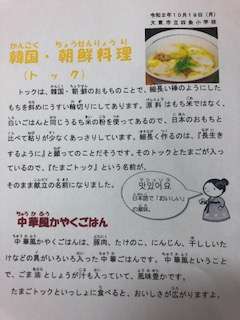 令和2年10月19日(月)
大東市立四条小学校
かんこく ちょうせんりょうり
韓国・朝鮮料理
(トック)
トックは、韓国・朝鮮のおもちのことで、細長い棒のようにした
もちを斜めにうすい輪切りにしてあります。原料はもち米ではなく、
白いごはんと同じうるち米の粉を使ってあるので、日本のおもちと
比べて粘りが少なくあっさりしています。細長く作るのは、『長生き
するように』と願ってのことだそうです。そのトックとたまごが入っ
ているので、『たまごトック』という名前が、
そのまま献立の名前になりました。
맛있어요
日本語で「おいしい」
の意味。
ちゅうかふう
中華風かやくごはん
中華風かやくごはんは、豚肉、たけのこ、にんじん、干ししいた
けなどの具がいろいろ入った中華ごはんです。中華風ということ
で、ごま油としょうがが入っていて、風味豊かです。
たまごトックといっしょに食べると、おいしさが広がりますよ。